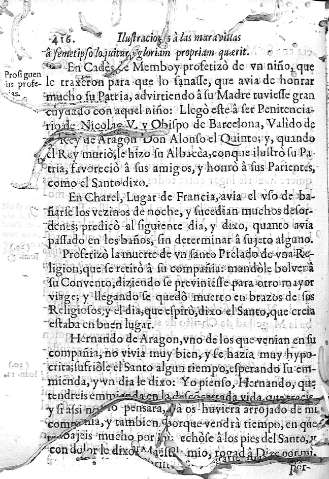 416. Ilustraciones à las maravillas
à semetipso loquitur, gloriam propriam quærit.
Prosiguen
sus profe-
as.
En Cades de Memboy profetizó de vn niño, que
le traxeron para que lo sanasse, que avia de honrar
mucho su Patria, advirtiendo à su Madre tuviesse gran
cuydado con aquel niño: Llegò este à ser Penitencia-
rio de Nicolao V. y Obispo de Barcelona, Valido de
Rey de Aragon Don Alonso el Quinto; y, quando
el Rey murió, le hizo su Albacea, con que ilustró su Pa-
tria, favoreció à sus amigos, y honrò à sus Parientes,
como el Santo dixo.
En Charel, Lugar de Francia, avia el vso de ba-
ñarse los vezinos de noche, y sucedian muchos desor-
denes; predicó al siguiente dia, y dixo, quanto avia
passado en los baños, sin determinar à sujeto alguno.
Profetizò la muerte de vn santo Prelado de vna Re-
ligion, que se retirò à su compañia: mandóle bolver à
su Convento, diziendo se previniesse para otro mayor
viage; y llegando se quedò muerto en brazos de sus
Religiosos, y el dia, que espiró, dixo el Santo, que creia
estaba en buen lugar.
Hernando de Aragon, vno de los que venian en su
compañia, no vivia muy bien, y se hazia muy hypo-
crita; sufrióle el Santo algun tiempo, esperando su en-
mienda, y vn dia le dixo: Yo pienso, Hernando, que
tendreis emmienda en la vida
y si assi no pensara, ya os huviera arrojado de mi com-
ñia, y tambien, porque vendrá tiempo, en que
bajeis mucho por echòse à los pies del Santo, y
con dolor le dixo: Maestro mio, rogad à Dios por mi.
Per-